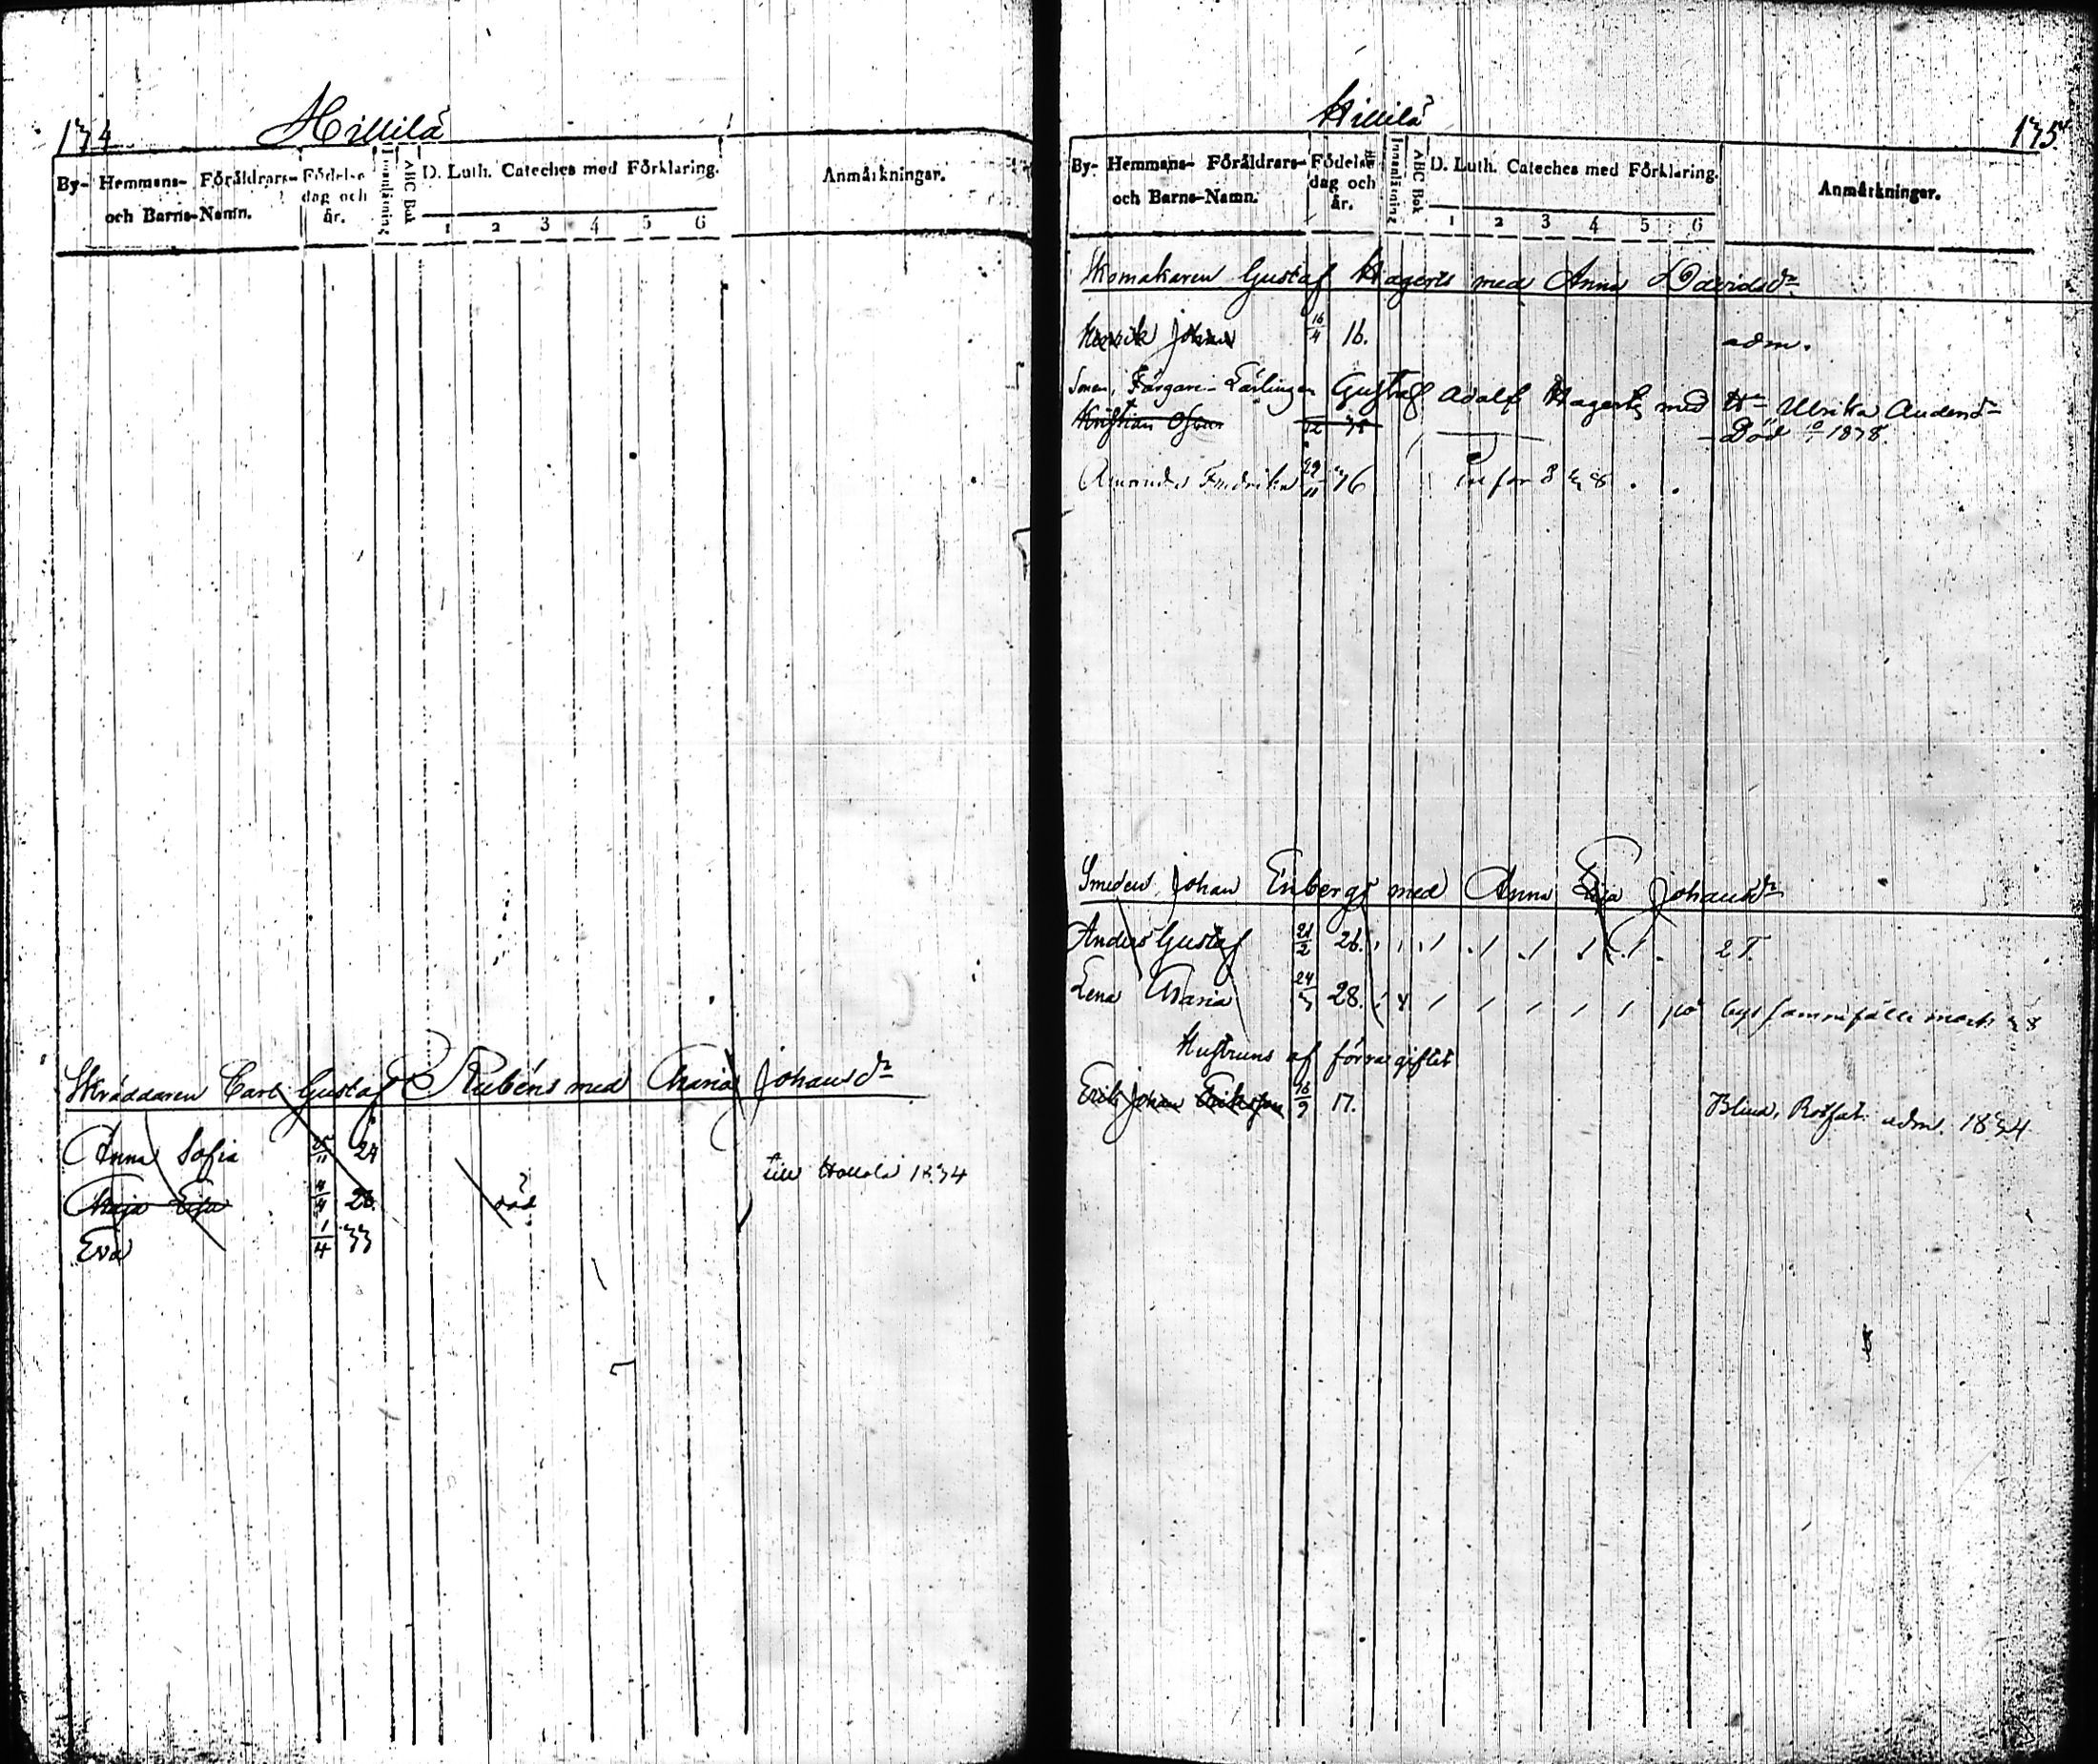 174 Hillilä
By- Hemmans- Föräldrars- och Barns-Namn. Födelse dag och år. Innanläsning ABC Bok D. Luth. Cateches med Förklaring. Anmärkningar.
1 2 3 4 5 6
Skräddaren Carl Gustaf Rubéns med Maria Johansdr
Anna Sofia 24
till Hollola 1834
Maja Lisa 4/4 28. död
Eva 1/4 33
Hillilä 175
By- Hemmans- Föräldrars- och Barns-Namn. Födelse dag och år. Innanläsning ABC Bok D. Luth. Cateches med Förklaring. Anmärkningar.
1 2 3 4 5 6
Skomakaren Gustaf Hagerts med Anna Davidsdr
Henrik Johan 16/4 16. adm.
Sonen, Färgare-Lärlingen Gustaf Adolf Hagerts med Hu Ulrika Andersdr
Kristian Oskar Död 1878
Amanda Fredrika 29/11 76
Smeden Johan Enbergs med Anna Lisa Johansdr
Anders Gustaf 21/2 26. 2 T.
Lena Maria 28.
Hustruns af förra giftet
Erik Johan Eriksson 16/9 17. Blind, adm. 1834